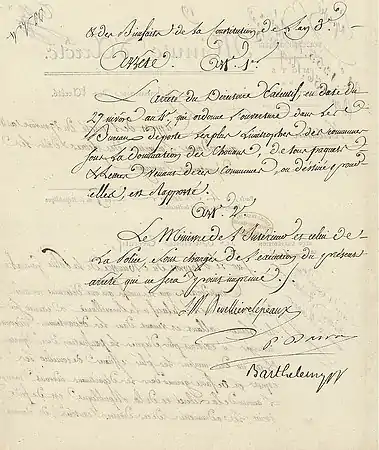 & des Bienfaits de la Constitution de l'an 3e.
Arrête. Art. 1er
L'arrêté du Directoire Exécutif, en date du
27 nivose an 4e, qui ordonne l'ouverture dans les
Bureaux de poste les plus limitrophes des communes
sous la domination des Chouans, de tous paquets
& Lettres venant de ces Communes, ou destinés pour
elles, est Rapporté.
Art. 2.
Le Ministre de l'Intérieur et celui de
la Police, sont chargés de l'exécution du présent
arrêté qui ne sera point imprimé.
L M Revellierelépeaux
Barthelemy